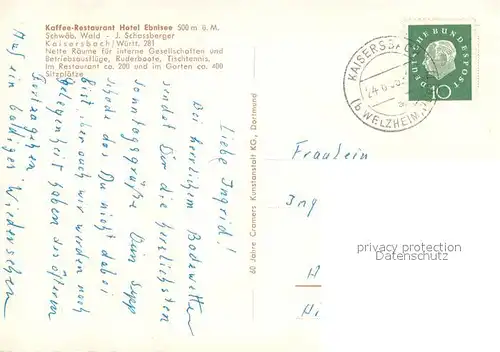 Kaffee-Restaurant Hotel Ebnisee 500 m ü. M.
Schwäb. Wald - J. Schassberger
Kaisersbach/Württ. 281
Nette Räume für interne Gesellschaften und
Betriebsausflüge, Ruderboote, Tischtennis.
Im Restaurant ca. 200 und im Garten ca. 400
Sitzplätze
Liebe Ingrid!
Bei herrlichem Badewetter
sendet Dir die herzlichsten
Sonntagsgrüße Dein Sepp
Schade das Du nicht dabei
bist aber auch wir werden noch
Gelegenheit haben des öfteren
Auf ein baldiges Wiedersehen
60 Jahre Cramers Kunstanstalt KG., Dortmund
KAISERSBACH
(b WELZHEIM
DEUTSCHE BUNDESPOST
10
Fräulein
Ing
H
Hi
privacy protection
privacy protection